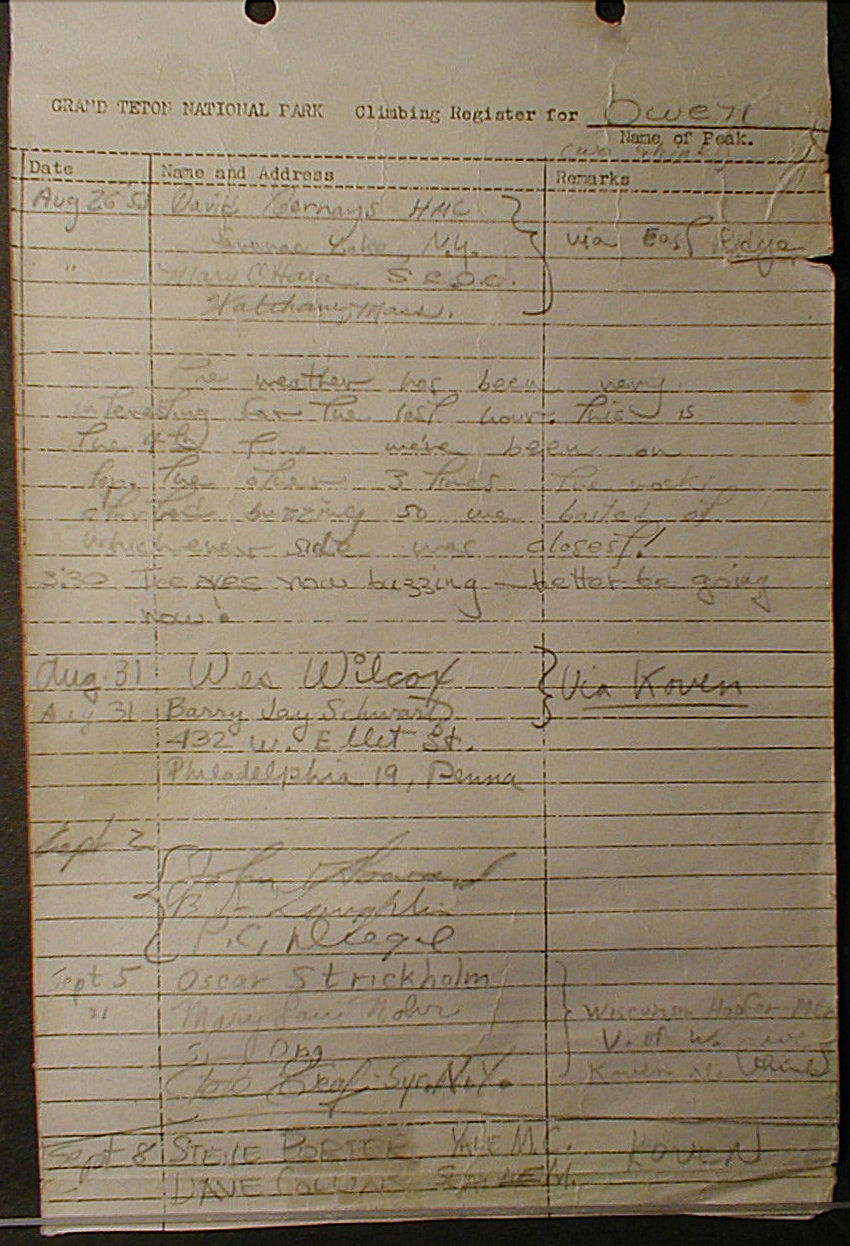 GRAND TETON NATIONAL PARK Climbing Register for Owen
Name of Peak.
Date Name and Address Remarks
Aug 26 53 David Bernays HMC
Saranac Lake, N.Y. via East Ridge
" Mary O'Hara
Mass.
The weather has been very
interesting for the last hour. This is
the 4th time we've been on
top. The other 3 times the rocks
started buzzing so we bailed off
whichever side was closest!
3:30 Ice axes now buzzing - better be going
now!
Aug. 31 Wes Wilcox Via Koven
Aug 31 Barry Jay Schwartz
432 W. Ellet St.
Philadelphia 19, Penna
Sept 2
John
Laughlin
P.C.
Sept 5 Oscar Strickholm
" Mary Wisconsin Hoofer
Ong U. of W.
Bob Graf - Syr. N.Y. Koven
Sept 8 STEVE PORTER YALE M.C. KOVEN
DAVE COLLINS